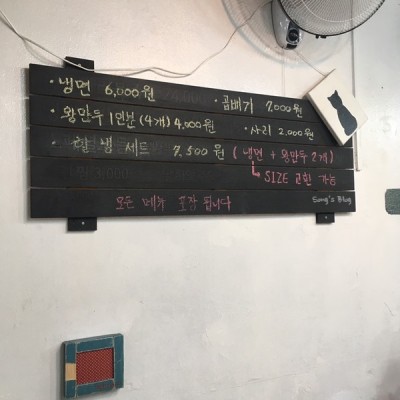 · 냉면 6,000원 · 곱빼기 2,000원
· 왕만두 1인분 (4개) 4,000원 · 사리 2,000원
· 냉 세트 7,500원 ( 냉면 + 왕만두 2개 )
SIZE 교환 가능
모든 메뉴 포장 됩니다
Song's Blog